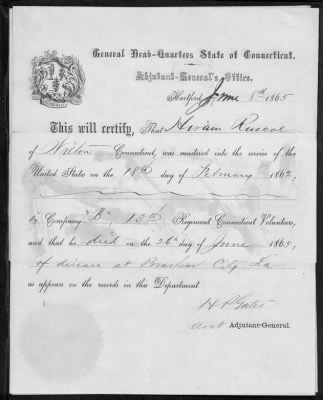 General Head-Quarters State of Connecticut.
Adjutant-General's Office.
Hartford June 8th 1865
This will certify, That Hiram Ruscoe
of Wilton Connecticut, was mustered into the service of the
United States on the 18th day of February 1862,
in Company "B" 13th Regiment Connecticut Volunteers,
and that he died on the 26th day of June 1863,
of disease at Brashear City La
as appears on the records in this Department.
Asst Adjutant-General.